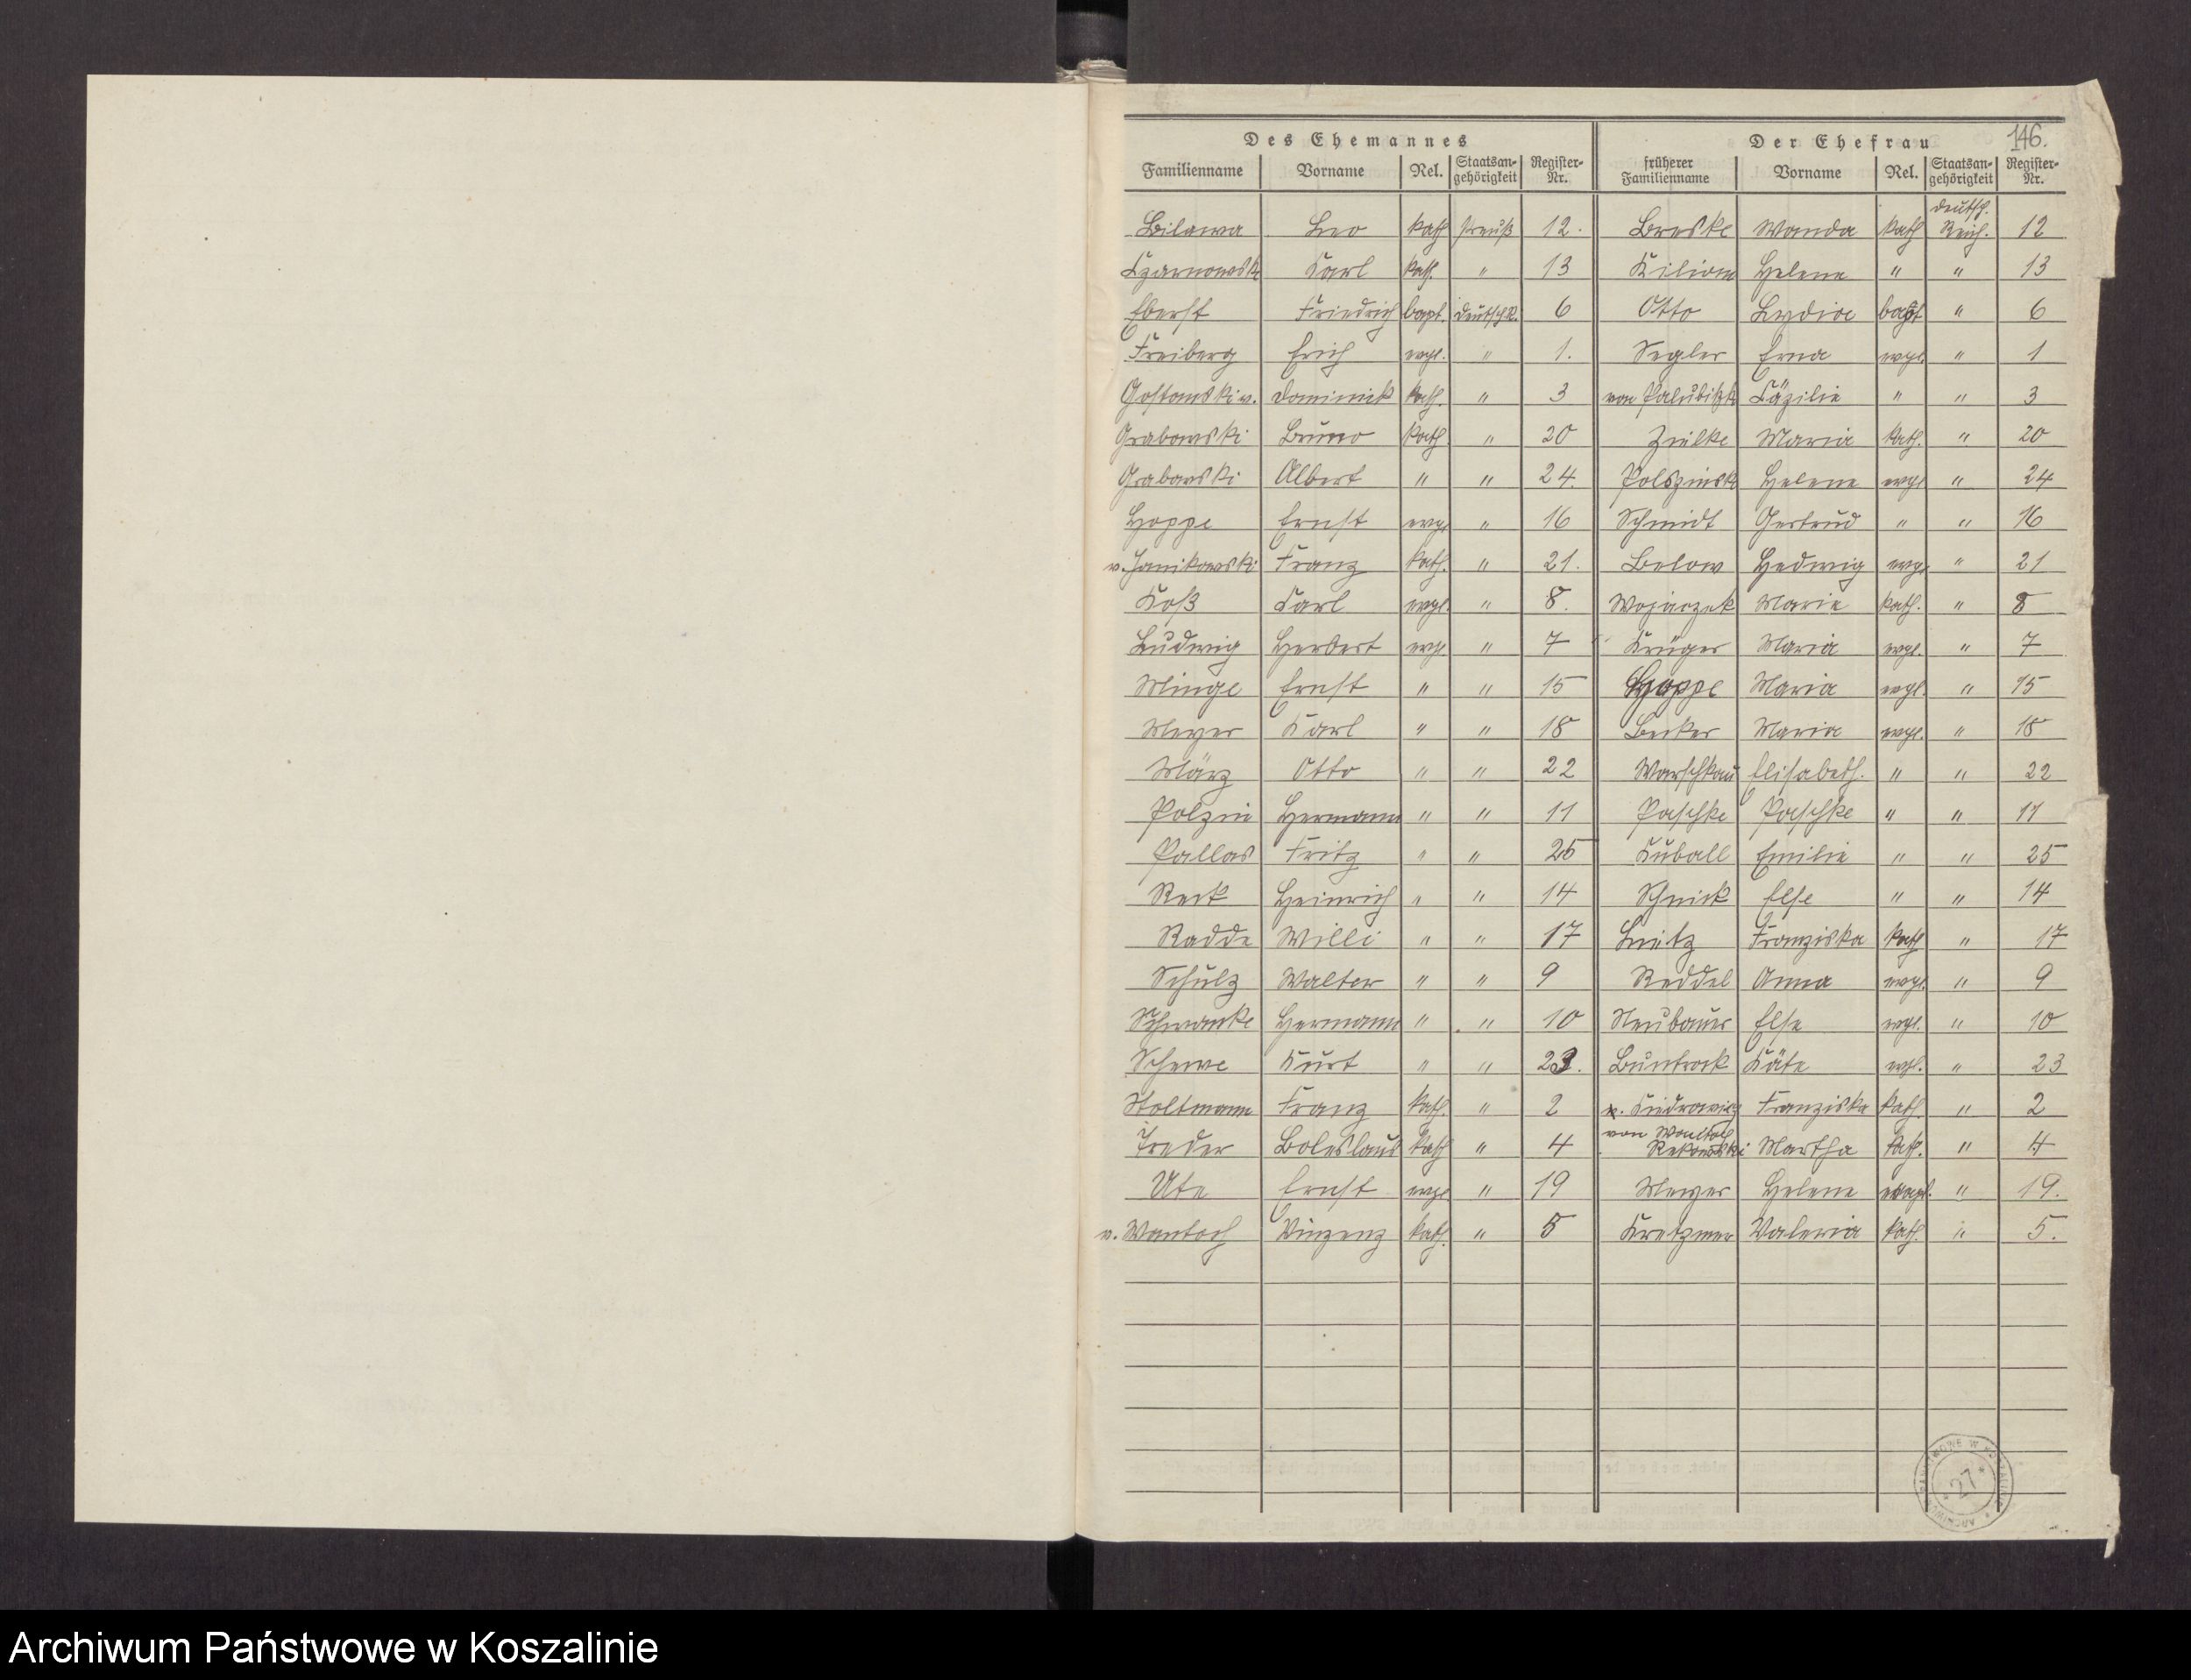 146.
Des Ehemannes Der Ehefrau
Familienname Vorname Rel. Staatsangehörigkeit Register-Nr. früherer Familienname Vorname Rel. Staatsangehörigkeit Register-Nr.
Bilawa Leo kath Preuß 12. Breske Wanda kath deutsch. Reich. 12
Czarnowski Karl kath. " 13 Kilian Helene " " 13
Eberst Friedrich bapt. deutsch R. 6 Otto Lydia bapt " 6
Freiberg Erich evgl. " 1. Segler Erna evgl. " 1
Gostomski v. Dominick kath. " 3 von Palubitzki Cäzilie " " 3
Grabowski Bruno kath " 20 Zielke Maria kath. " 20
Grabowski Albert " " 24. Polszinski Helene evgl " 24
Hoppe Ernst evgl " 16 Schmidt Gertrud " " 16
v. Janikowski Franz kath. " 21. Below Hedwig evgl " 21
Koß Karl evgl. " 8. Wojarzek Marie kath. " 8
Ludwig Herbert evgl. " 7 Krüger Maria evgl. " 7
Minge Ernst " " 15 Hoppe Maria evgl. " 15
Meyer Karl " " 18 Becker Maria evgl. " 18
März Otto " " 22 Warschkau Elisabeth. " " 22
Polzin Hermann " " 11 Paschke Paschke " " 11
Pallas Fritz " " 25 Kuball Emilie " " 25
Reck Heinrich " " 14 Schnick Else " " 14
Radde Willi " " 17 Franziska kath " 17
Schulz Walter " " 9 Reddel Anna evgl. " 9
Schwanke Hermann " " 10 Neubauer Else evgl. " 10
Schewe Kurt " " 23. Buntrock Käte evgl. " 23
Stoltmann Franz kath. " 2 v. Kiedrowicz Franziska kath. " 2
Treder Boleslaus kath " 4 von Wantoch Rekowski Martha kath. " 4
Ute Ernst evgl " 19 Meyer Helene evgl. " 19.
v. Wantoch Vinzenz kath. " 5 Kretzmer Valeria kath. " 5.
ARCHIWUM PAŃSTWOWE W KOSZALINIE
* 27 *
Archiwum Państwowe w Koszalinie